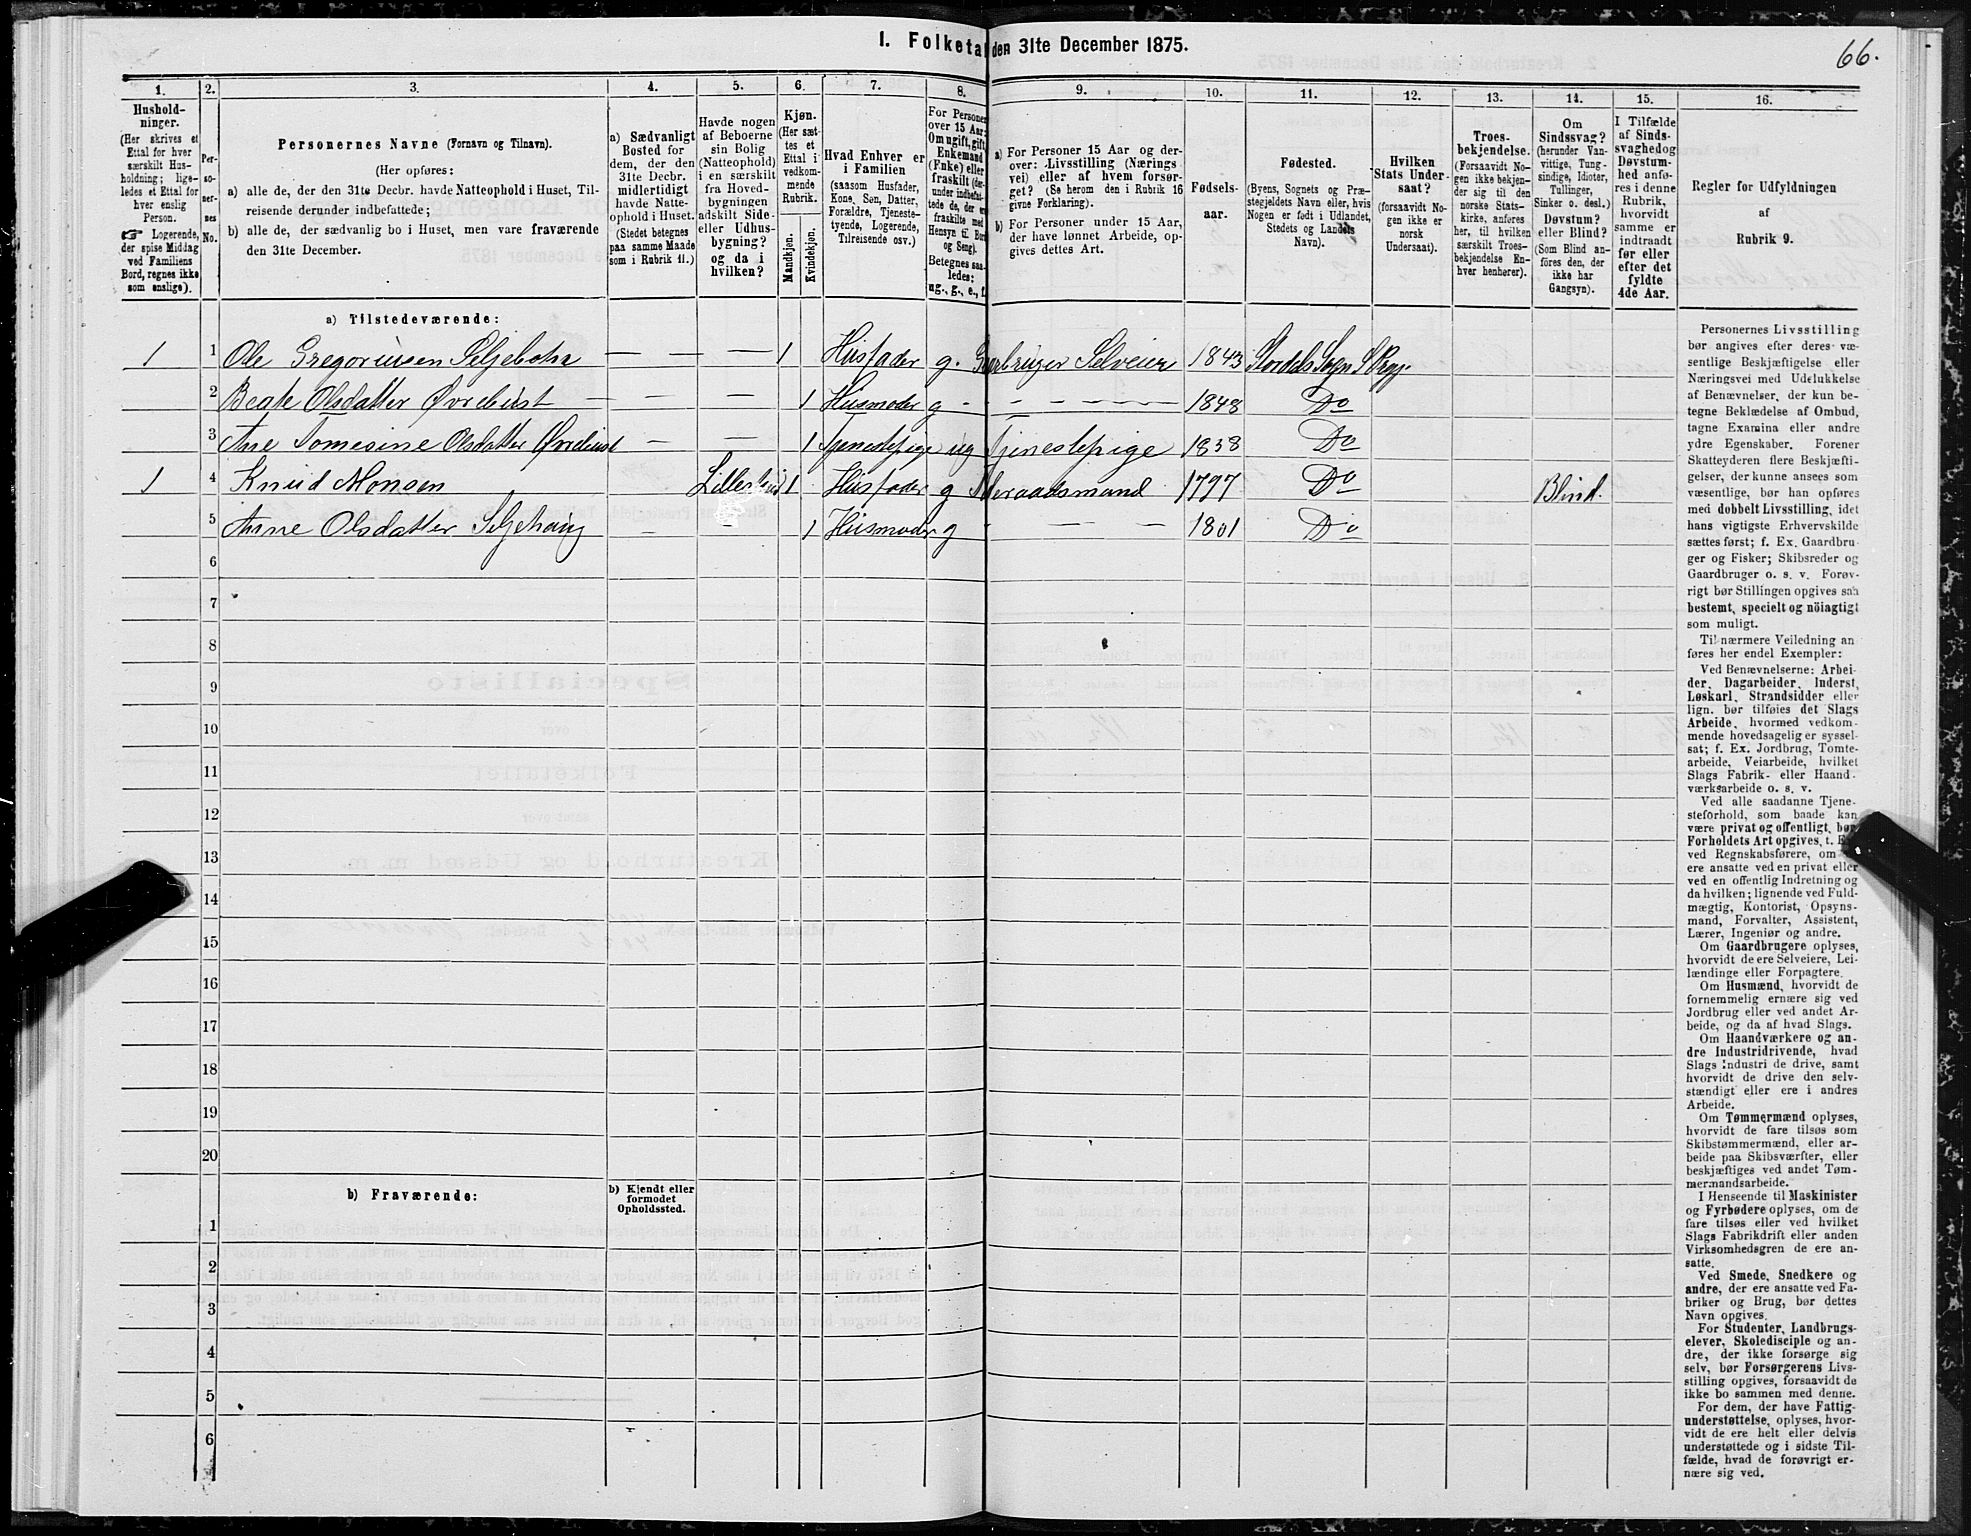 I. Folketal den 31te December 1875.
66.
1.
2.
3.
4.
5.
6.
7.
8.
9.
10.
11.
12.
13.
14.
15.
16.
Hushold-
ninger.
(Her skrives et
Ettal for hver
særskilt Hus-
holdning; lige-
ledes et Ettal for
hver enslig
Person.
☞ Logerende,
der spise Middag
ved Familiens
Bord, regnes ikke
som enslige).
Per-
so-
ner-
nes
No.
Personernes Navne (Fornavn og Tilnavn).
(Her opføres:
a) alle de, der den 31te Decbr. havde Natteophold i Huset, Til-
reisende derunder indbefattede;
b) alle de, der sædvanlig bo i Huset, men vare fraværende
den 31te December.
a) Sædvanligt
Bosted for
dem, der den
31te Decbr.
midlertidigt
havde Natte-
ophold i Huset.
(Stedet betegnes
paa samme Maade
som i Rubrik 11.)
Havde nogen
af Beboerne
sin Bolig
(Natteophold)
i en særskilt
fra Hoved-
bygningen
adskilt Side-
eller Udhus-
bygning?
og da i
hvilken?
Kjøn.
(Her sæt-
tes et
Ettal i
vedkom-
mende
Rubrik.
Mandkjøn.
Kvindekjøn.
Hvad Enhver er
i Familien
(saasom Husfader,
Kone, Søn, Datter,
Forældre, Tjeneste-
tyende, Logerende,
Tilreisende osv.)
For Personer
over 15 Aar:
Om ugift, gift,
Enkemand
(Enke) eller
fraskilt
Betegnes saa-
ledes:
ug., g., e., f.
a) For Personer 15 Aar og der-
over: Livsstilling (Nærings-
vei) eller af hvem forsør-
get? (Se herom den i Rubrik 16
givne Forklaring).
b) For Personer under 15 Aar,
der have lønnet Arbeide, op-
gives dettes Art.
Fødsels-
aar.
Fødested.
(Byens, Sognets og Præ-
stegjeldets Navn eller, hvis
Nogen er født i Udlandet,
Stedets og Landets
Navn).
Hvilken
Stats Under-
saat?
(forsaavidt No-
gen ikke er
norsk
Undersaat).
Troes-
bekjendelse.
(Forsaavidt No-
gen ikke bekjen-
der sig til den
norske Stats-
kirke, anføres
her, til hvilken
særskilt Troes-
bekjendelse En-
hver henhører).
Om
Sindssvag?
(herunder Van-
vittige, Tung-
sindige, Idioter,
Tullinger,
Sinker o. desl.)
Døvstum?
eller Blind?
(Som Blind an-
føres den, der
ikke har
Gangsyn).
I Tilfælde
af Sinds-
svaghed og
Døvstum-
hed anfø-
res i denne
Rubrik,
hvorvidt
samme er
indtraadt
før eller
efter det
fyldte
4de Aar.
Regler for Udfyldningen
af
Rubrik 9.
a) Tilstedeværende:
1 1 Ole Gregoriusen Seljebotn — — — 1 Husfader g. Gaarbruger Selveier 1843 Stordals Sogn
2 Beate Olsdatter Øvrebust — — — 1 Husmoder g - - - - - 1848 Do
3 Ane Tomesine Olsdatter Øvrebust — — 1 Tjenestepige ug Tjenestepige 1838 Do
1 4 Knud Monsen 1 Husfader g 1797 Do Blind.
5 Anne Olsdatter Seljehaug — 1 Husmoder g - — — 1801 Do
6
7
8
9
10
11
12
13
14
15
16
17
18
19
20
b) Fraværende:
b) Kjendt eller
formodet
Opholdssted.
1
2
3
4
5
6
Personernes Livsstilling
bør angives efter deres væ-
sentlige Beskjæftigelse eller
Næringsvei med Udelukkelse
af Benævnelser, der kun be-
tegne Beklædelse af Ombud,
tagne Examina eller andre
ydre Egenskaber. Forener
Skatteyderen flere Beskjæfti-
gelser, der kunne ansees som
væsentlige, bør han opføres
med dobbelt Livsstilling, idet
hans vigtigste Erhvervskilde
sættes først; f. Ex. Gaardbru-
ger og Fisker; Skibsreder og
Gaardbruger o. s. v. Forøv-
rigt bør Stillingen opgives saa
bestemt, specielt og nöiagtigt
som muligt.
Til nærmere Veiledning an-
føres her endel Exempler:
Ved Benævnelserne: Arbei-
der, Dagarbeider, Inderst,
Løskarl, Strandsidder eller
lign. bør tilføies det Slags
Arbeide, hvormed vedkom-
mende hovedsagelig er syssel-
sat; f. Ex. Jordbrug, Tomte-
arbeide, Veiarbeide, hvilket
Slags Fabrik- eller Haand-
værksarbeide o. s. v.
Ved alle saadanne Tjene-
steforhold, som baade kan
være privat og offentligt, bør
Forholdets Art opgives, t. Ex.
ved Regnskabsførere, om
ere ansatte ved en privat eller
ved en offentlig Indretning og
da hvilken; lignende ved Fuld-
mægtig, Kontorist, Opsyns-
mand, Forvalter, Assistent,
Lærer, Ingeniør og andre.
Om Gaardbrugere oplyses,
hvorvidt de ere Selveiere, Lei-
lændinge eller Forpagtere.
Om Husmænd, hvorvidt de
fornemmelig ernære sig ved
Jordbrug eller ved andet Ar-
beide, og da af hvad Slags.
Om Haandværkere og an-
dre Industridrivende, hvad
Slags Industri de drive, samt
hvorvidt de drive den selv-
stændigt eller ere i andres
Arbeide.
Om Tømmermænd oplyses,
hvorvidt de fare tilsøs som
Skibstømmermænd, eller ar-
beide paa Skibsværfter, eller
beskjæftiges ved andet Tøm-
mermandsarbeide.
I Henseende til Maskinister
og Fyrbødere oplyses, om de
fare tilsøs eller ved hvilket
Slags Fabrikdrift eller anden
Virksomhedsgren de ere an-
satte.
Ved Smede, Snedkere og
andre, der ere ansatte ved Fa-
briker og Brug, bør dettes
Navn opgives.
For Studenter, Landbrugs-
elever, Skoledisciple og an-
dre, der ikke forsørge sig
selv, bør Forsørgerens Livs-
stilling opgives, forsaavidt de
ikke bo sammen med denne.
For dem, der have Fattig-
understøttelse, oplyses, hvor-
vidt de ere helt eller delvis
understøttede og i sidste Til-
fælde, hvad de forøvrigt er-
nære sig ved.